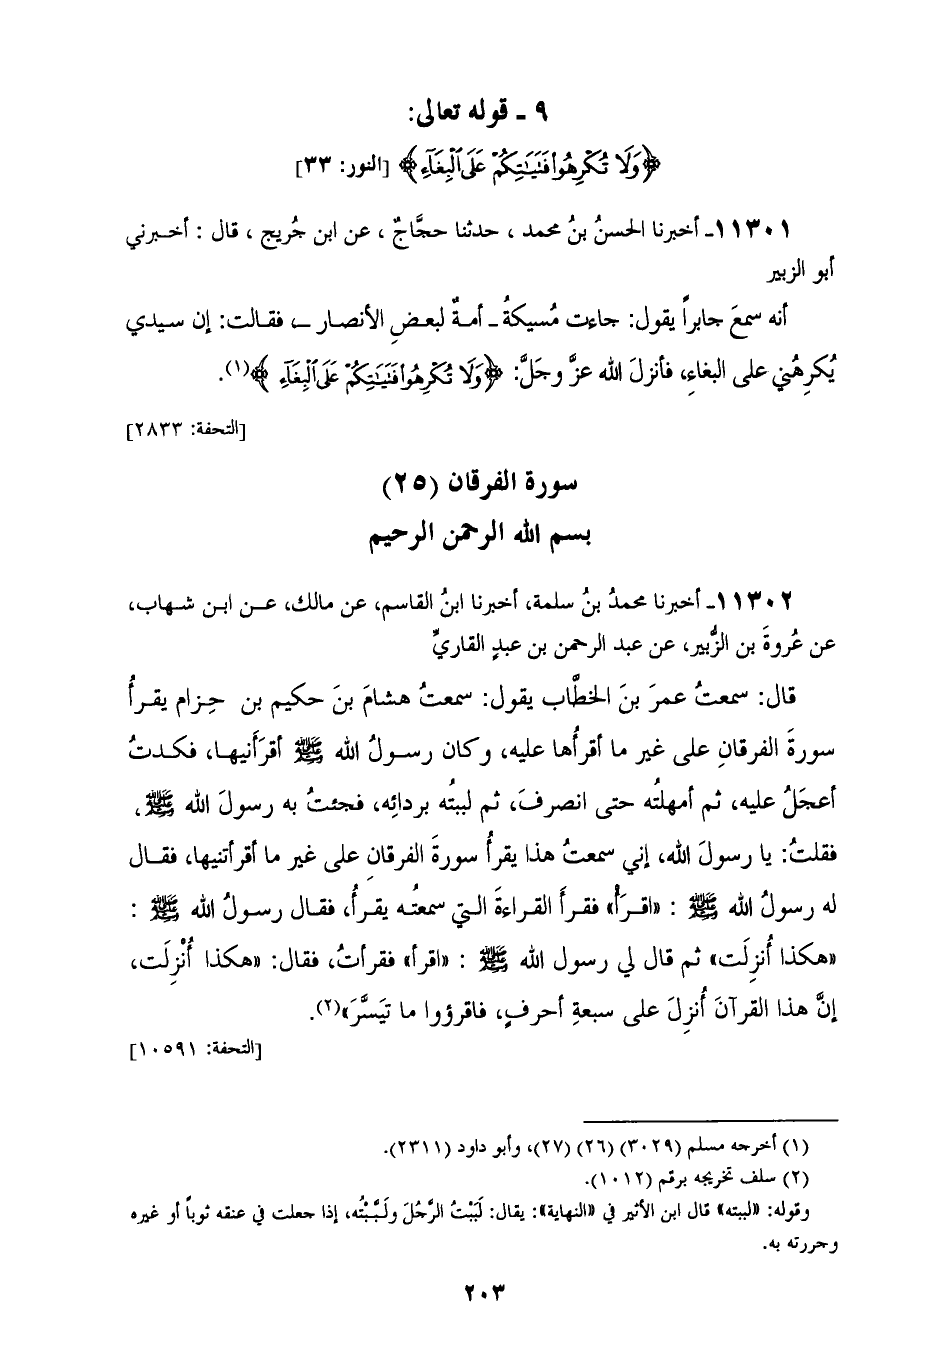 ٩ ـ قوله تعالى:
﴿وَلَا تُكْرِهُوا فَتَيَٰتِكُمْ عَلَى ٱلْبِغَآءِ﴾ [النور: ٣٣]
١١٣٠١ـ أخبرنا الحسنُ بنُ محمد ، حدثنا حجَّاجٌ ، عن ابن جُريج ، قال : أخبرني
أبو الزبير
أنه سمعَ جابراً يقول: جاءت مُسيكةُ ـ أمةٌ لبعضِ الأنصار ـ، فقالت: إن سيدي
يُكرِهُني على البغاءِ، فأنزلَ الله عزَّ وجَلَّ: ﴿وَلَا تُكْرِهُوا فَتَيَٰتِكُمْ عَلَى ٱلْبِغَآءِ ﴾(١).
[التحفة: ٢٨٣٣]
سورة الفرقان (٢٥)
بسم الله الرحمن الرحيم
١١٣٠٢ـ أخبرنا محمدُ بنُ سلمة، أخبرنا ابنُ القاسم، عن مالك، عن ابن شهاب،
عن عُروةَ بن الزُّبير، عن عبد الرحمن بن عبدٍ القاريِّ
قال: سمعتُ عمرَ بنَ الخطَّاب يقول: سمعتُ هشامَ بنَ حكيم بن حِزام يقرأُ
سورةَ الفرقانِ على غير ما أقرأُها عليه، وكان رسولُ الله ﷺ أقرَأَنيها، فكدتُ
أعجَلُ عليه، ثم أمهلتُه حتى انصرفَ، ثم لببتُه بردائِه، فجئتُ به رسولَ الله ﷺ،
فقلتُ: يا رسولَ الله، إني سمعتُ هذا يقرأُ سورةَ الفرقانِ على غير ما أقرأتنيها، فقال
له رسولُ الله ﷺ : «اقرَأْ» فقرأَ القراءةَ التي سمعتُه يقرأُ، فقال رسولُ الله ﷺ :
«هكذا أُنزِلَت» ثم قال لي رسول الله ﷺ : «اقرأ» فقرأتُ، فقال: «هكذا أُنْزِلَت،
إنَّ هذا القرآنَ أُنزِلَ على سبعةِ أحرفٍ، فاقرؤوا ما تيَسَّرَ»(٢).
[التحفة: ١٠٥٩١]
(١) أخرجه مسلم (٣٠٢٩) (٢٦) (٢٧)، وأبو داود (٢٣١١).
(٢) سلف تخريجه برقم (١٠١٢).
وقوله: «لببته» قال ابن الأثير في «النهاية»: يقال: لَبَبْتُ الرَّجُلَ ولَبَّبْتُه، إذا جعلت في عنقه ثوباً أو غيره
وحررته به.
٢٠٣